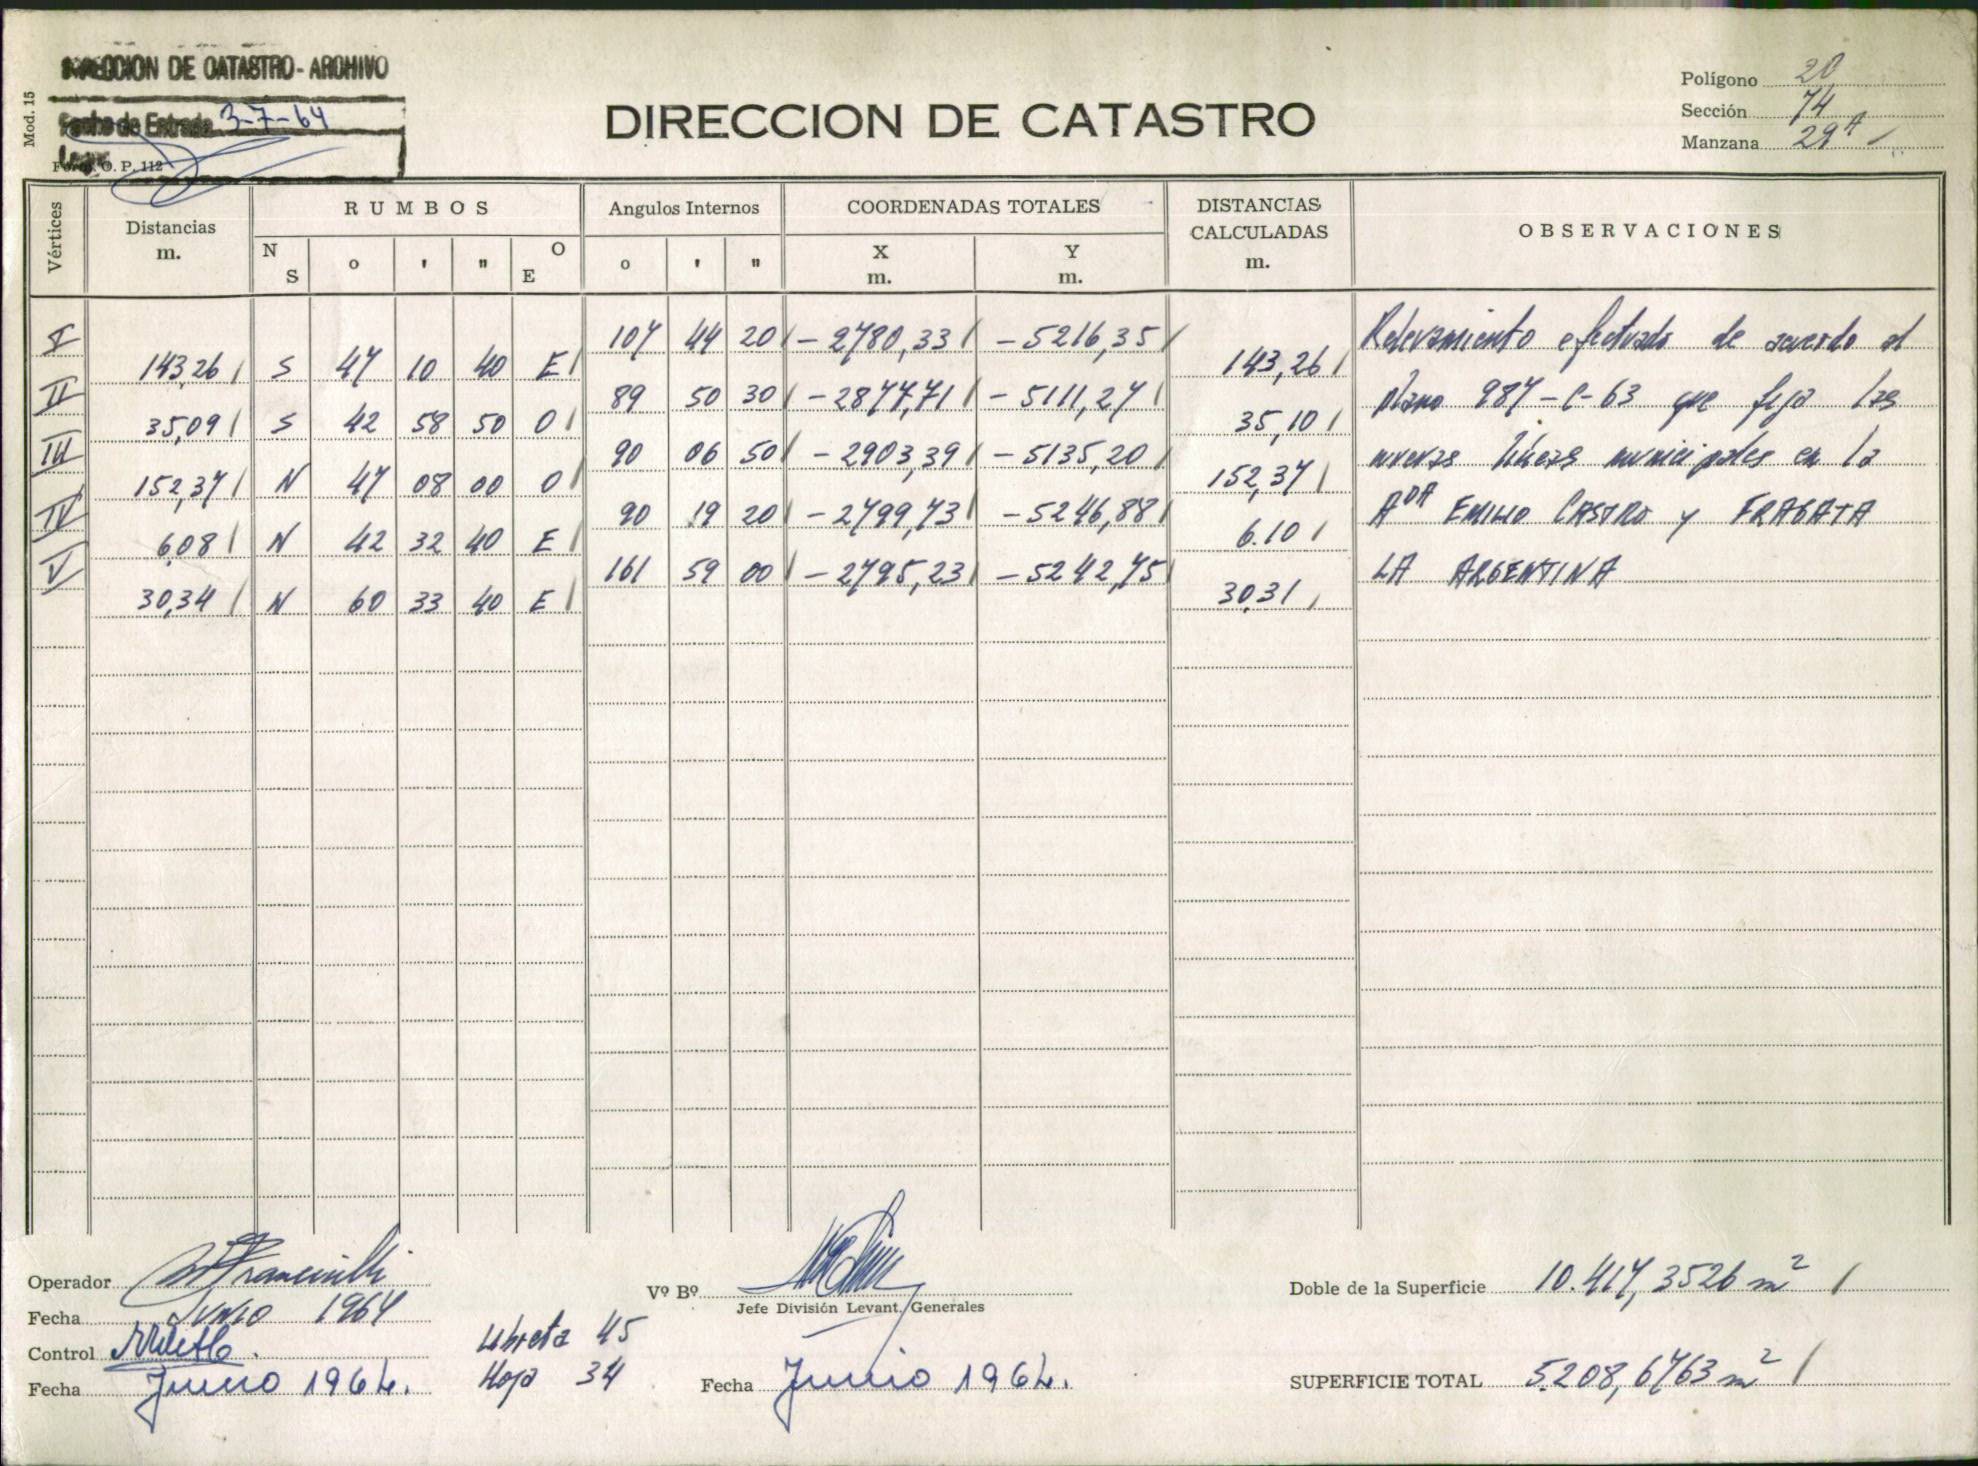 DIRECCION DE CATASTRO - ARCHIVO
Fecho de Entrada 3-7-64
Form. O. P. 112
Mod. 15
DIRECCION DE CATASTRO
Polígono 20
Sección 74
Manzana 29A
Vértices
Distancias m.
RUMBOS
N S o ' " O E
Angulos Internos
o ' "
COORDENADAS TOTALES
X m. Y m.
DISTANCIAS CALCULADAS m.
OBSERVACIONES
I 107 44 20 -2780,33 -5216,35 Relevamiento efectuado de acuerdo al
143,26 S 47 10 40 E 143,26
II 89 50 30 -2877,71 -5111,27 plano 987-C-63 que fija las
35,09 S 42 58 50 O 35,10
III 90 06 50 -2903,39 -5135,20 nuevas líneas municipales en la
152,37 N 47 08 00 O 152,37
IV 90 19 20 -2799,73 -5246,88 ADA EMILIO CASTRO y FRAGATA
6,08 N 42 32 40 E 6.10
V 161 59 00 -2795,23 -5242,75 LA ARGENTINA
30,34 N 60 33 40 E 30,31
Operador
Fecha Junio 1964
Control
Fecha Junio 1964.
Libreta 45
Hoja 34
Vº Bº
Jefe División Levant. Generales
Fecha Junio 1964.
Doble de la Superficie 10.417,3526 m²
SUPERFICIE TOTAL 5.208,6763 m²